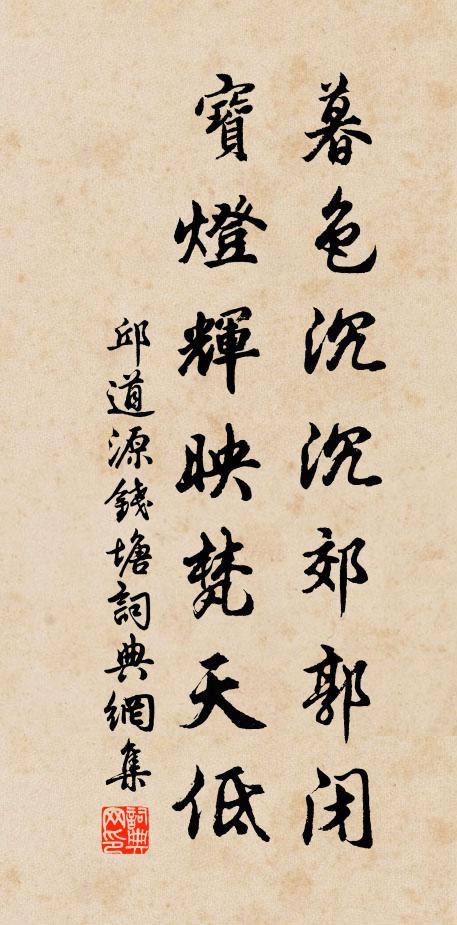 暮色沉沉郊郭闭
寶燈輝映梵天低
邱道源錢塘詞典網集
詞典網印